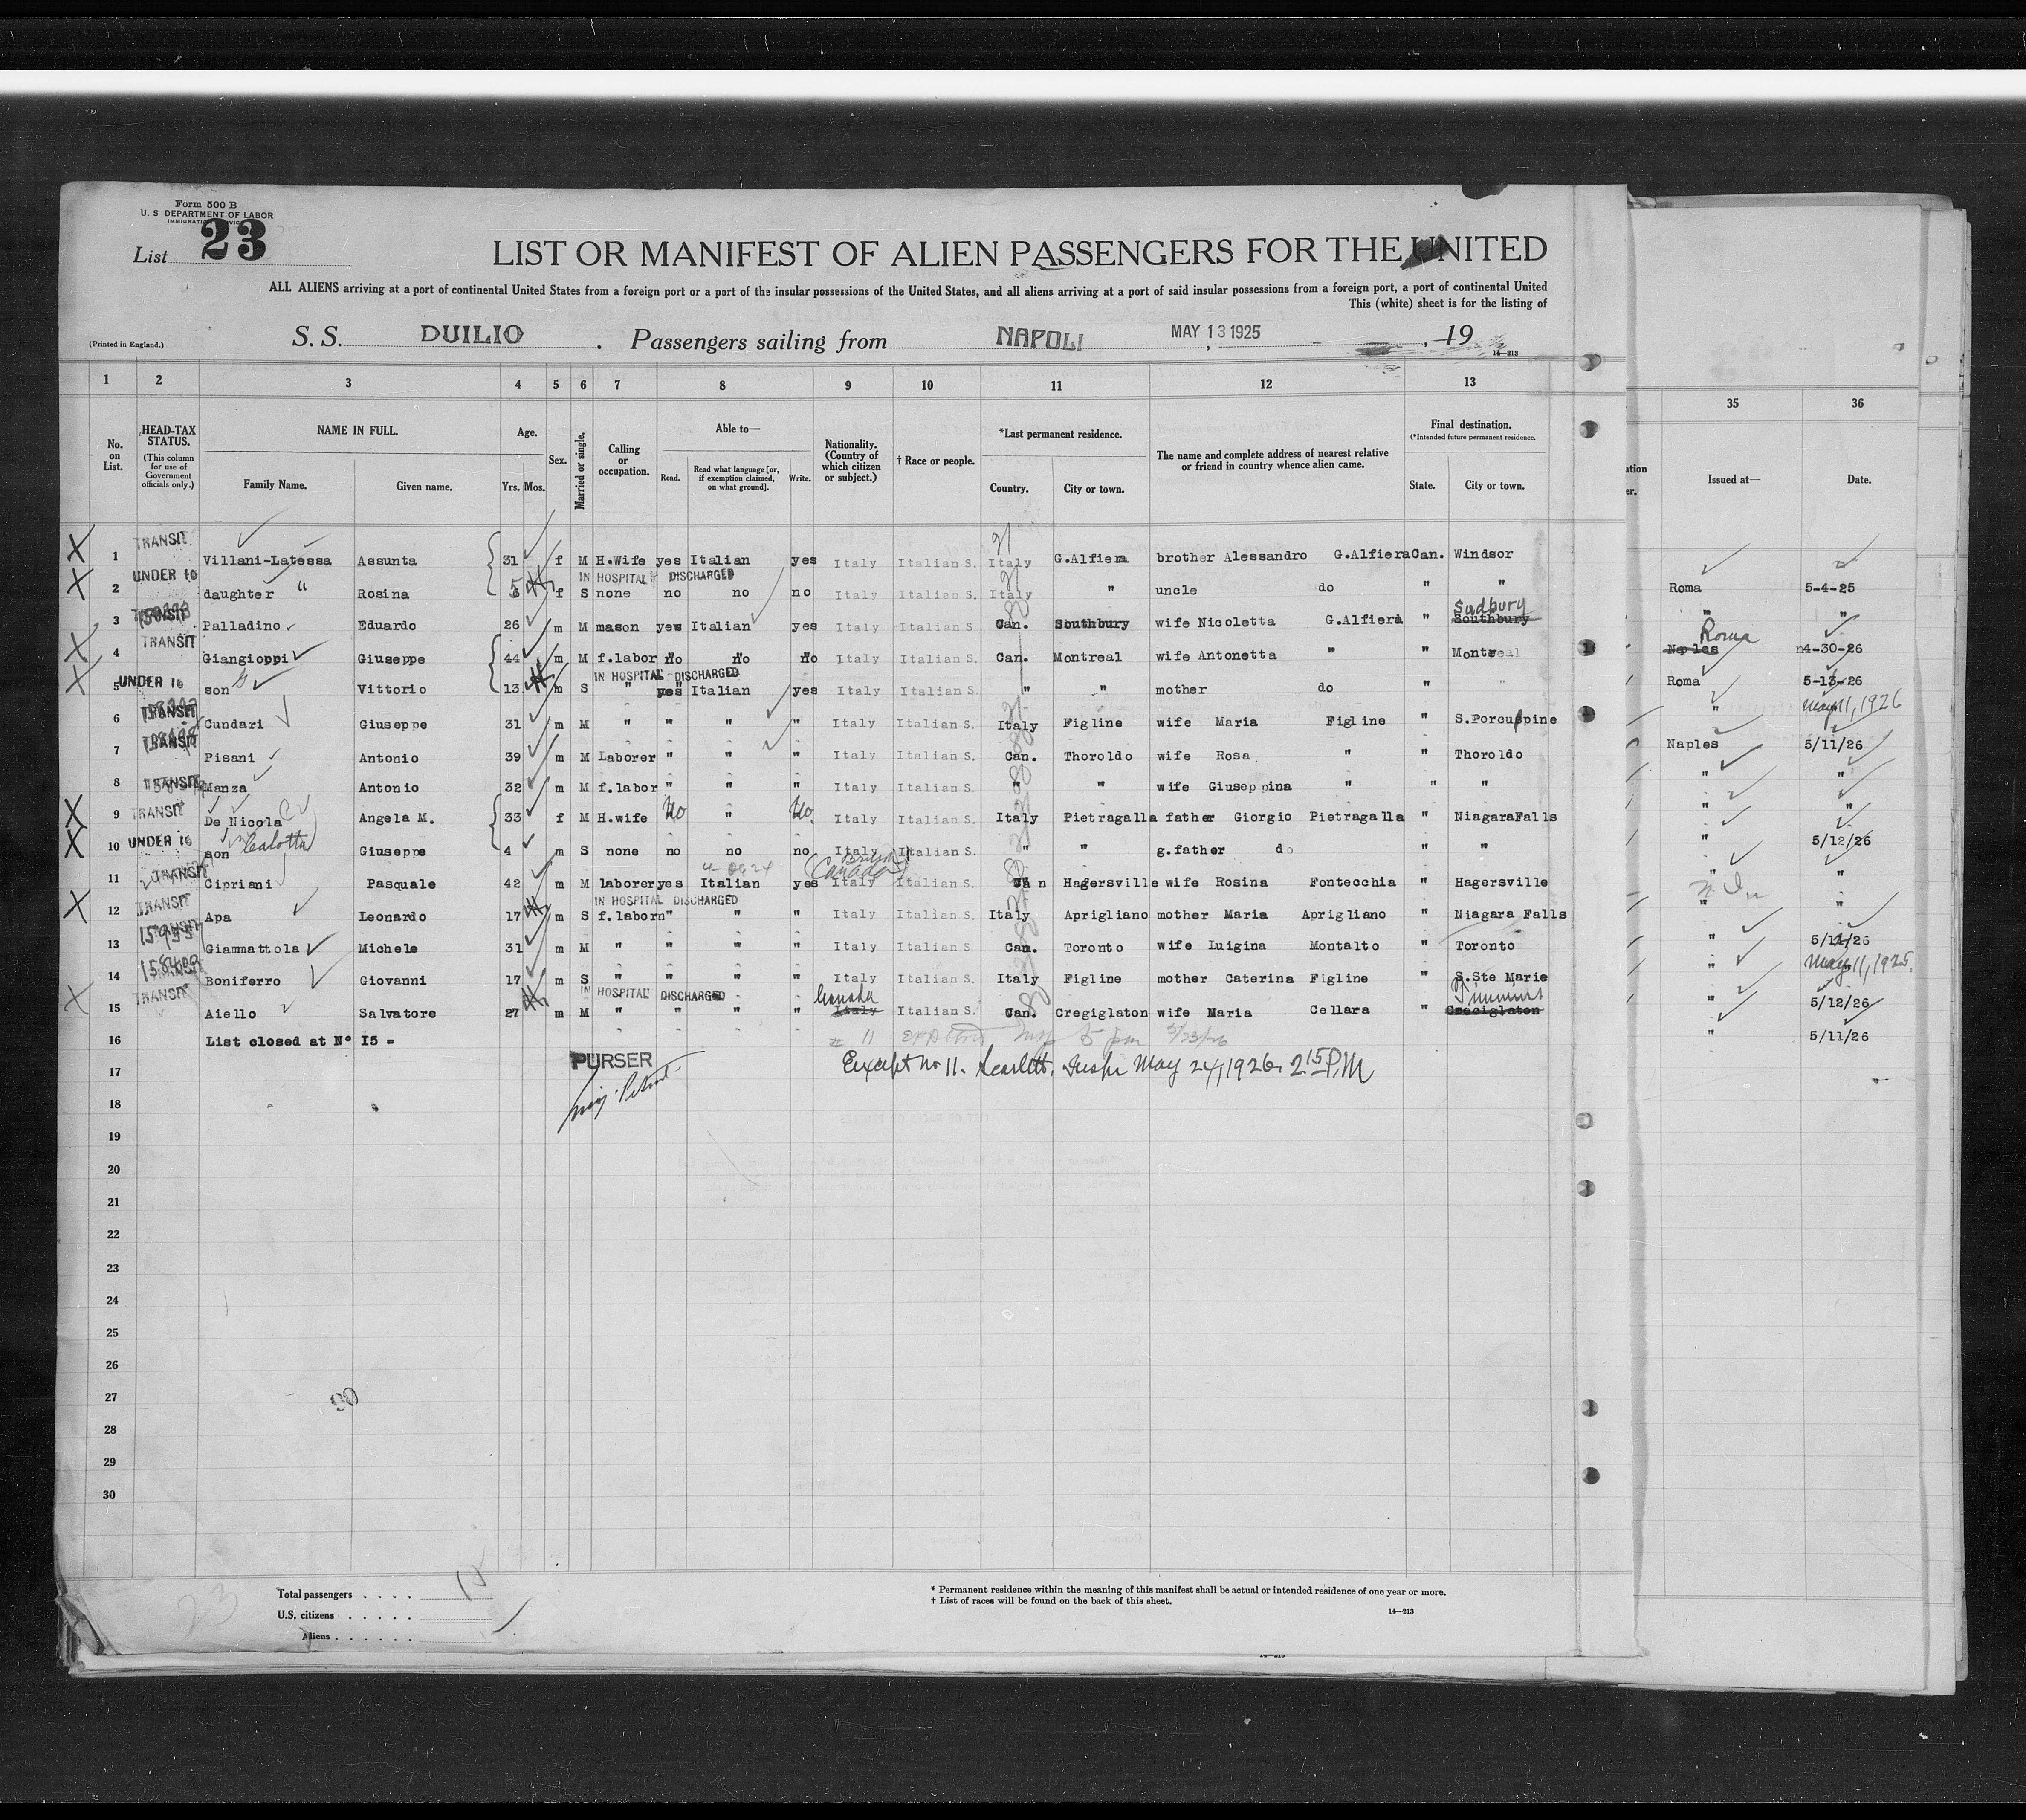 Form 500 B
U. S DEPARTMENT OF LABOR
List 23
LIST OR MANIFEST OF ALIEN PASSENGERS FOR THE UNITED
ALL ALIENS arriving at a port of continental United States from a foreign port or a port of the insular possessions of the United States, and all aliens arriving at a port of said insular possessions from a foreign port, a port of continental United
This (white) sheet is for the listing of
(Printed in England.) S. S. DUILIO . Passengers sailing from NAPOLI MAY 13 1925 , 19
14—213
1 2 3 4 5 6 7 8 9 10 11 12 13 35 36
No. on List. HEAD-TAX STATUS. (This column for use of Government officials only.) NAME IN FULL. Family Name. Given name. Age. Yrs. Mos. Sex. Married or single. Calling or occupation. Able to— Read. Read what language [or, if exemption claimed, on what ground]. Write. Nationality. (Country of which citizen or subject.) † Race or people. *Last permanent residence. Country. City or town. The name and complete address of nearest relative or friend in country whence alien came. Final destination. (*Intended future permanent residence. State. City or town. Issued at— Date.
X 1 TRANSIT Villani-Latessa Assunta 31 f M H.Wife yes Italian yes Italy Italian S. Italy G.Alfiera brother Alessandro G.Alfiera Can. Windsor
IN HOSPITAL DISCHARGED
X 2 UNDER 16 daughter " Rosina 5 f S none no no no Italy Italian S. Italy " uncle do " " Roma 5-4-25
Sudbury
3 TRANSIT Palladino Eduardo 26 m M mason yes Italian yes Italy Italian S. Can. Southbury wife Nicoletta G.Alfiera " Southbury " "
Roma
X 4 TRANSIT Giangioppi Giuseppe 44 m M f.labor no no no Italy Italian S. Can. Montreal wife Antonetta " " Montreal Naples 4-30-26
IN HOSPITAL DISCHARGED
X 5 UNDER 16 son G Vittorio 13 m S " yes Italian yes Italy Italian S. " " mother do " " Roma 5-13-26
6 TRANSIT Cundari Giuseppe 31 m M " " " " Italy Italian S. Italy Figline wife Maria Figline " S.Porcuppine " May 11, 1926
7 TRANSIT Pisani Antonio 39 m M Laborer " " " Italy Italian S. Can. Thoroldo wife Rosa " " Thoroldo Naples 5/11/26
8 TRANSIT Manza Antonio 32 m M f.labor " " " Italy Italian S. " " wife Giuseppina " " " " "
X 9 TRANSIT De Nicola C Angela M. 33 f M H.wife No " No Italy Italian S. Italy Pietragalla father Giorgio Pietragalla " NiagaraFalls " "
X 10 UNDER 16 son Calotta Giuseppe 4 m S none no no no Italy Italian S. " " g.father do " " " 5/12/26
(British Canada)
11 TRANSIT Cipriani Pasquale 42 m M laborer yes Italian yes Italy Italian S. Can Hagersville wife Rosina Fontecchia " Hagersville " "
IN HOSPITAL DISCHARGED
X 12 TRANSIT Apa Leonardo 17 m S f.labor " " " Italy Italian S. Italy Aprigliano mother Maria Aprigliano " Niagara Falls " "
13 Giammattola Michele 31 m M " " " " Italy Italian S. Can. Toronto wife Luigina Montalto " Toronto " 5/11/26
14 Boniferro Giovanni 17 m S " " " " Italy Italian S. Italy Figline mother Caterina Figline " S.Ste Marie " May 11, 1925.
IN HOSPITAL DISCHARGED Canada Timmins
X 15 TRANSIT Aiello Salvatore 27 m M " " " " Italy Italian S. Can. Cregiglaton wife Maria Cellara " Creciglaton " 5/12/26
16 List closed at N° I5 = # 11 5 pm 5/23/26 " 5/11/26
17 PURSER Except no 11. Scarlett, Inspr May 24, 1926, 2 15 P.M
18
19
20
21
22
23
24
25
26
27
28
29
30
Total passengers . . . . 15
U.S. citizens . . . . .
Aliens . . . . . .
23
* Permanent residence within the meaning of this manifest shall be actual or intended residence of one year or more.
† List of races will be found on the back of this sheet.
14—213